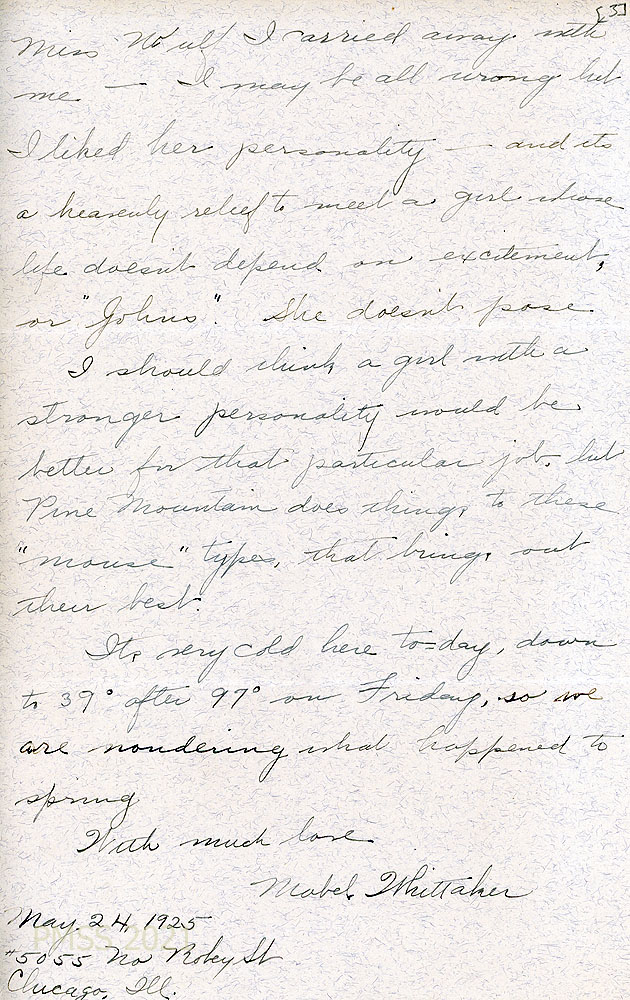 [3]
Miss Wulf I carried away with
me — I may be all wrong but
I liked her personality — and its
a heavenly relief to meet a girl whose
life doesn't depend on excitement,
or "Johns". She doesn't pose.
I should think a girl with a
stronger personality would be
better for that particular job, but
Pine Mountain does things to these
"mouse" types, that brings out
their best.
Its very cold here to=day, down
to 39° after 97° on Friday, so we
are wondering what happened to
spring
With much love
Mabel Whittaker
May 24, 1925
PMSS 202
#5055 No Robey St
Chicago, Ill.